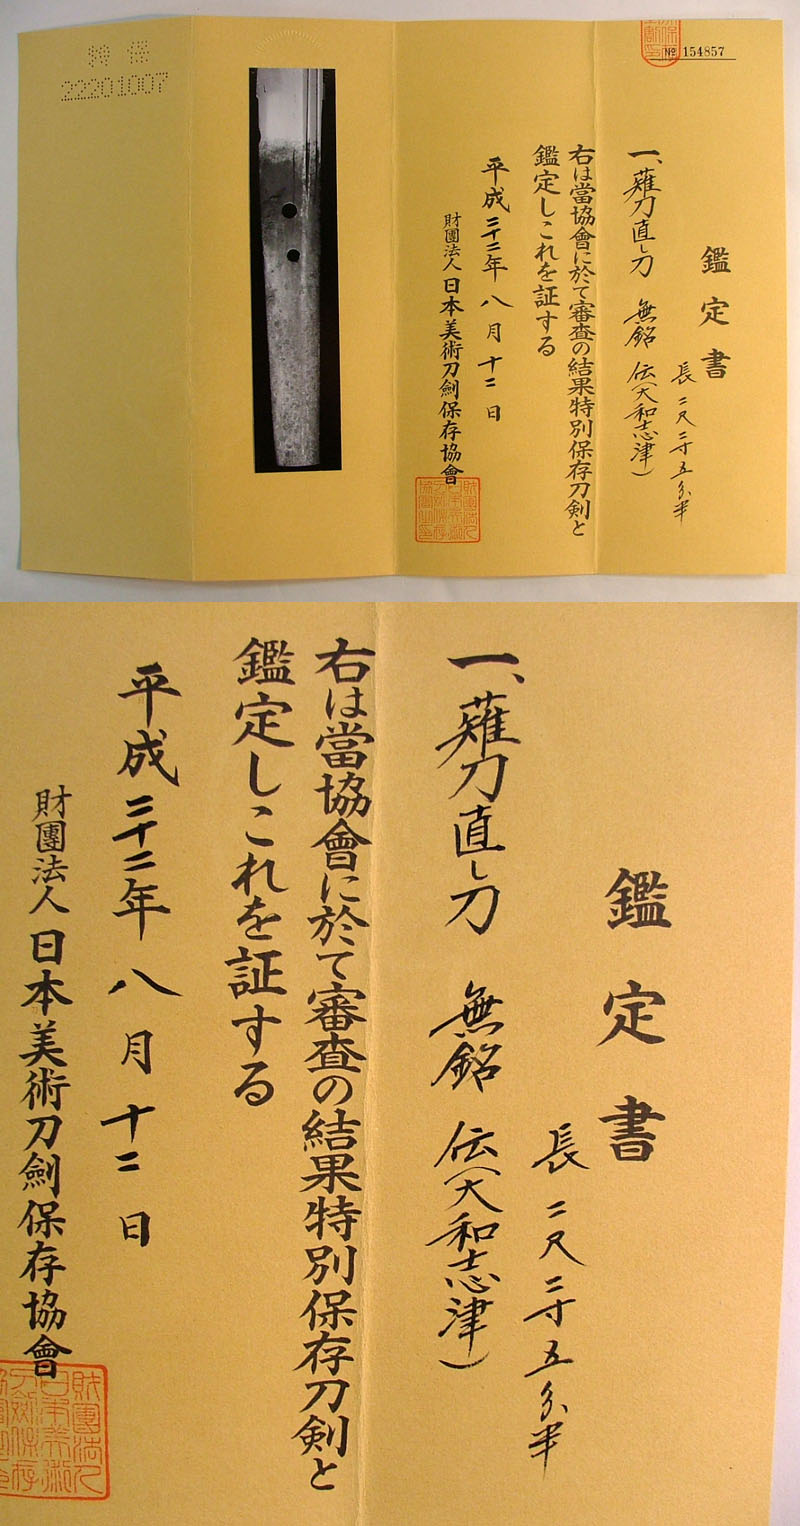 № 154857
鑑定書
長 二尺二寸五分半
一、薙刀直し刀 無銘 伝(大和志津)
右は當協會に於て審査の結果特別保存刀剣と
鑑定しこれを証する
平成二十二年八月十二日
財團法人日本美術刀劍保存協會
特保
22201007
鑑定書
長 二尺二寸五分半
一、薙刀直し刀 無銘 伝(大和志津)
右は當協會に於て審査の結果特別保存刀剣と
鑑定しこれを証する
平成二十二年八月十二日
財團法人日本美術刀劍保存協會